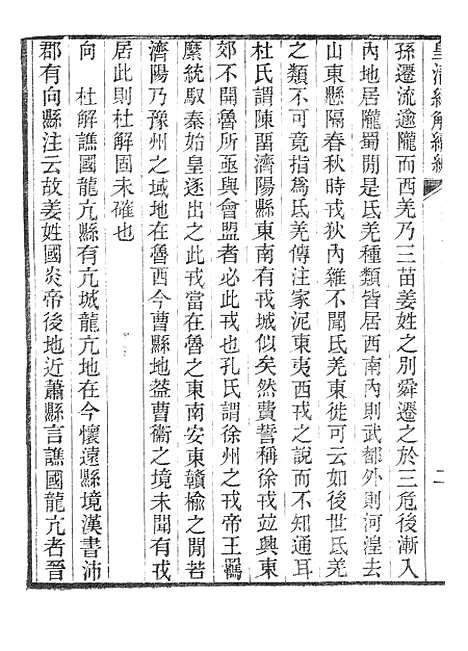 皇清經解續編
二
孫遷流逾隴而西羌乃三苗姜姓之別舜遷之於三危後漸入
內地居隴蜀閒是氐羌種類皆居西南內則武都外則河湟去
山東懸隔春秋時戎狄內雜不聞氐羌東徙可云如後世氐羌
之類不可竟指爲氐羌傳注家泥東夷西戎之說而不知通耳
杜氏謂陳畱濟陽縣東南有戎城似矣然費誓稱徐戎竝興東
郊不開魯所亟與會盟者必此戎也孔氏謂徐州之戎帝王羈
縻統馭秦始皇逐出之此戎當在魯之東南安東贛榆之閒若
濟陽乃豫州之域地在魯西今曹縣地葢曹衞之境未聞有戎
居此則杜解固未確也
向　杜解譙國龍亢縣有亢城龍亢地在今懷遠縣境漢書沛
郡有向縣注云故姜姓國炎帝後地近蕭縣言譙國龍亢者晉